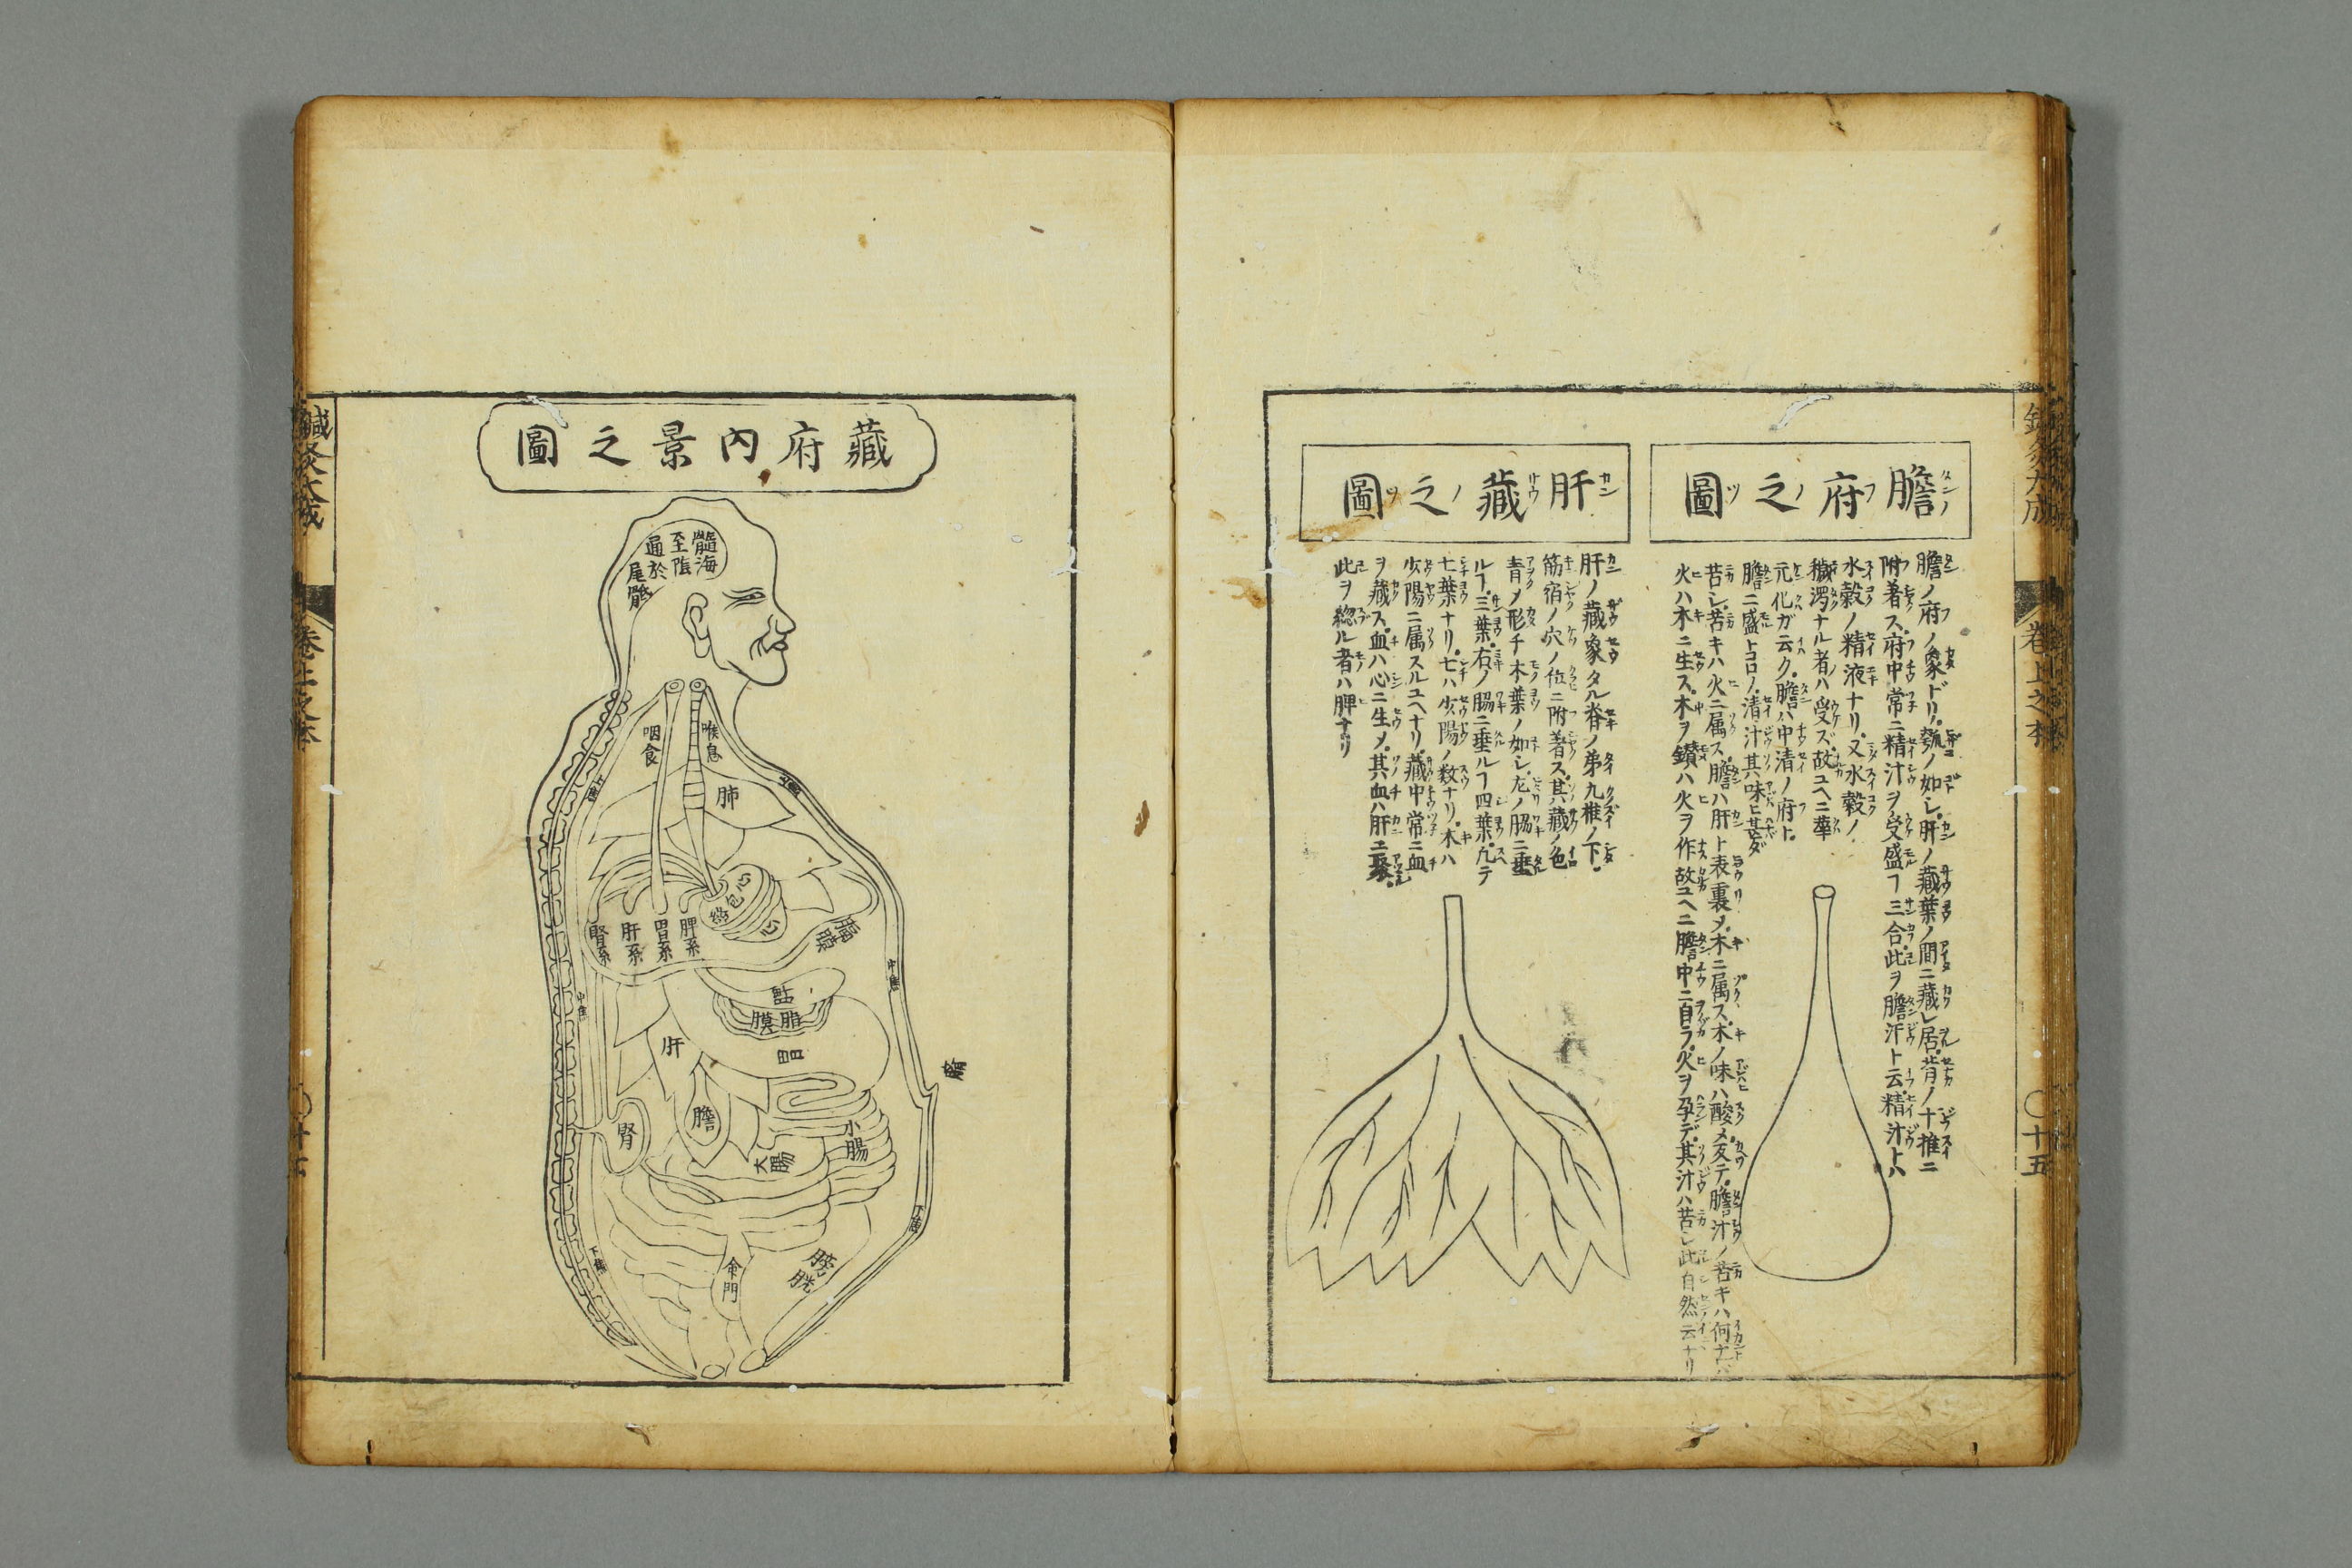 膽府之圖
膽ノ府ノ象ドリ瓠ノ如シ肝ノ藏葉ノ間ニ藏レ居背ノ十推ニ
附着ス府中常ニ精汁ヲ受盛ヿ三合此ヲ膽汗ト云精汁トハ
水穀ノ精液ナリ又水穀ノ
穢滓ナル者ハ受ズ故ユヘニ華
元化ガ云ク膽ハ中清ノ府ト
膽ニ盛トコロノ清汁其味ヒ甚ダ
苦シ苦キハ火ニ属ス膽ハ肝ト表裏メ木ニ属ス木ノ味ハ酸メ反テ膽汁ノ苦キハ何ナレバ
火ハ木ニ生ス木ヲ鑚ハ火ヲ作故ユヘニ膽中ニ自ラ火ヲ孕デ其汁ハ苦シ此自然云ナリ
肝藏之圖
肝ノ藏象タル脊ノ弟九椎ノ下
筋宿ノ穴ノ位ニ附着ス其藏ノ色
青メ形チ木葉ノ如シ左ノ脇ニ垂
ルヿ三葉右ノ脇ニ垂ルヿ四葉九テ
七葉ナリ七ハ少陽ノ数ナリ木ハ
少陽ニ属スルユヘナリ藏中常ニ血
ヲ藏ス血ハ心ニ生メ其血ハ肝ニ聚
此ヲ總ル者ハ脾ナリ
卷上之本
〇十五
藏府内景之圖
髓海
至陰
通於
尾骶
咽食
喉息
肺
心包絡
心
腎系
肝系
胃系
脾系
膈膜
中焦
脂膜
胃
肝
膽
腎
小腸
大腸
臍
下焦
膀胱
命門
鍼灸大成
卷上之本